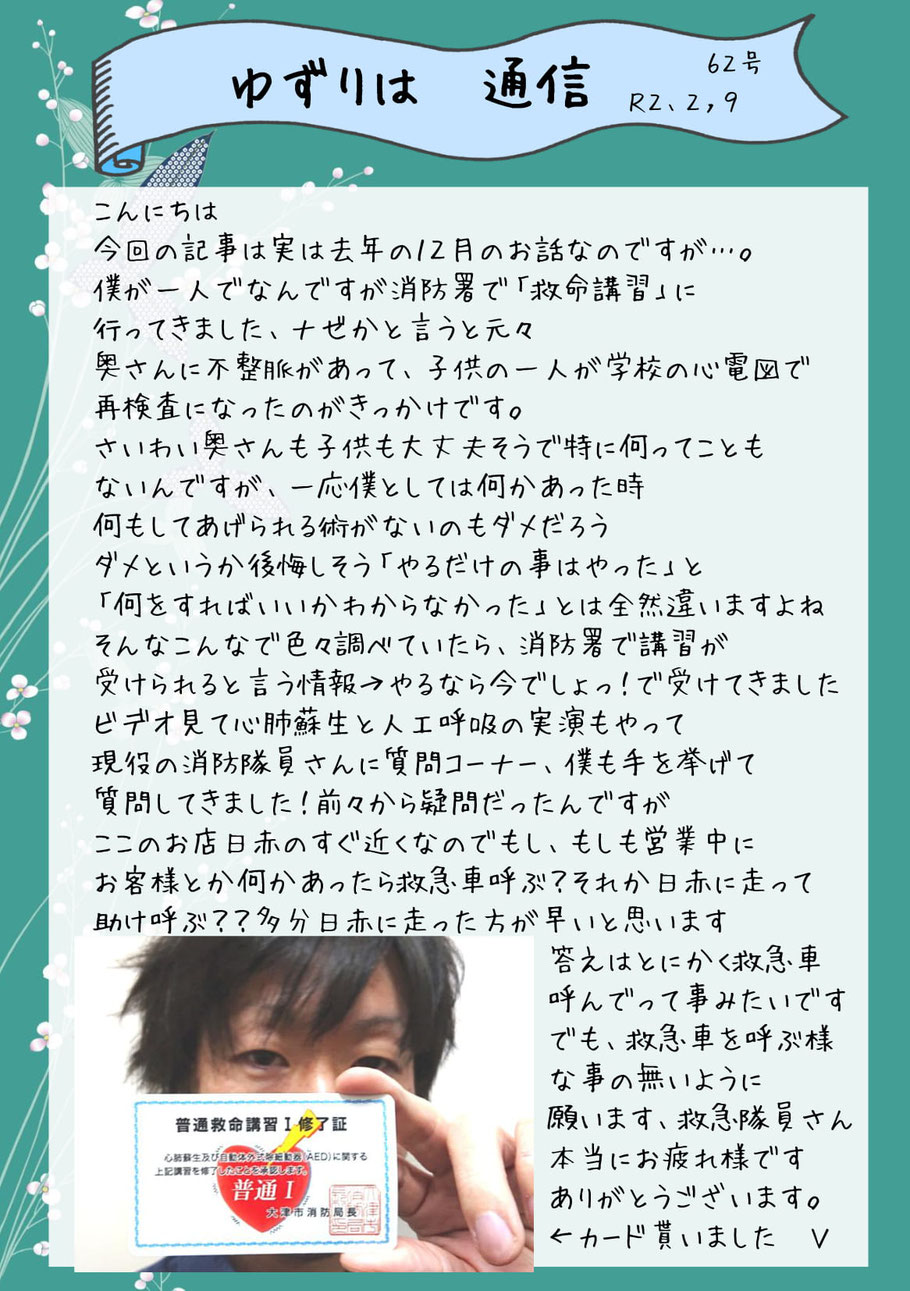 ゆずりは 通信
62号
R2、2,9
こんにちは
今回の記事は実は去年の12月のお話なのですが…。
僕が一人でなんですが消防署で「救命講習」に
行ってきました、ナゼかと言うと元々
奥さんに不整脈があって、子供の一人が学校の心電図で
再検査になったのがきっかけです。
さいわい奥さんも子供も大丈夫そうで特に何ってことも
ないんですが、一応僕としては何かあった時
何もしてあげられる術がないのもダメだろう
ダメというか後悔しそう「やるだけの事はやった」と
「何をすればいいかわからなかった」とは全然違いますよね
そんなこんなで色々調べていたら、消防署で講習が
受けられると言う情報→やるなら今でしょっ!で受けてきました
ビデオ見て心肺蘇生と人工呼吸の実演もやって
現役の消防隊員さんに質問コーナー、僕も手を挙げて
質問してきました!前々から疑問だったんですが
ここのお店日赤のすぐ近くなのでもし、もしも営業中に
お客様とか何かあったら救急車呼ぶ?それか日赤に走って
助け呼ぶ??多分日赤に走った方が早いと思います
答えはとにかく救急車
呼んでって事みたいです
でも、救急車を呼ぶ様
な事の無いように
願います、救急隊員さん
本当にお疲れ様です
ありがとうございます。
←カード貰いました V
普通救命講習I修了証
心肺蘇生及び自動体外式除細動器(AED)に関する
上記講習を修了したことを承認します。
普通I
大津市消防局長